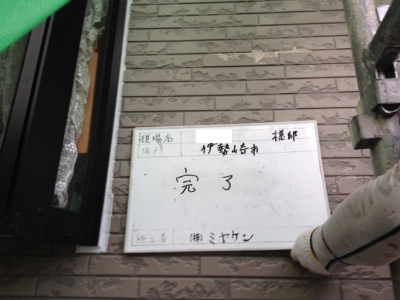 現場名 様邸
住所 伊勢崎市
完了
施工者 (株)ミヤケン